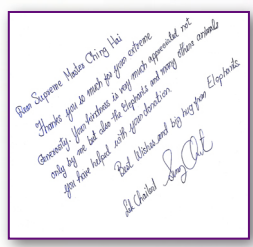 Dear Supreme Master Ching Hai
Thanks you so much for your extreme
Generosity. Your kindness is very much appreciated not
only by me but also the Elephants and many others animals
you have helped with your donation.
Best Wishes and big hug from Elephants
Lek Chailert